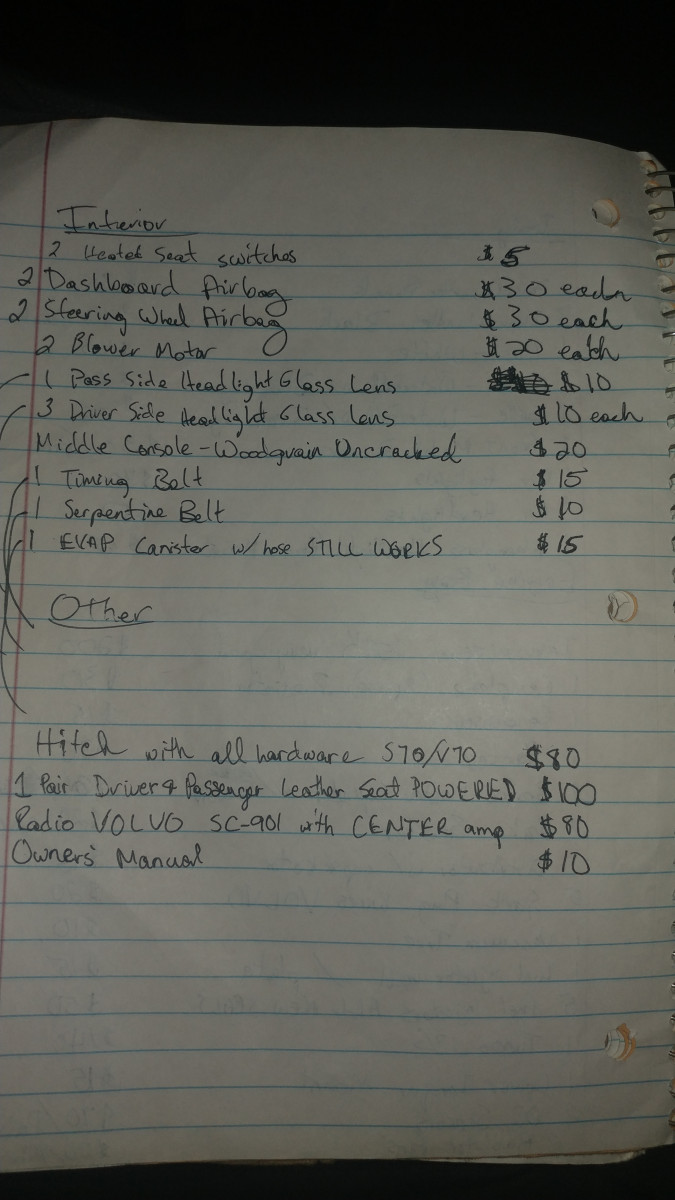 Interior
2 Heated Seat switches $5
2 Dashboard Airbag $30 each
2 Steering Wheel Airbag $30 each
2 Blower Motor $20 each
1 Pass Side Headlight Glass Lens $10
3 Driver Side Headlight Glass Lens $10 each
Middle Console - Woodgrain Uncracked $20
1 Timing Belt $15
1 Serpentine Belt $10
1 EVAP Canister w/ hose STILL WORKS $15
Other
Hitch with all hardware S70/V70 $80
1 Pair Driver & Passenger Leather Seat POWERED $100
Radio VOLVO SC-901 with CENTER amp $80
Owners' Manual $10